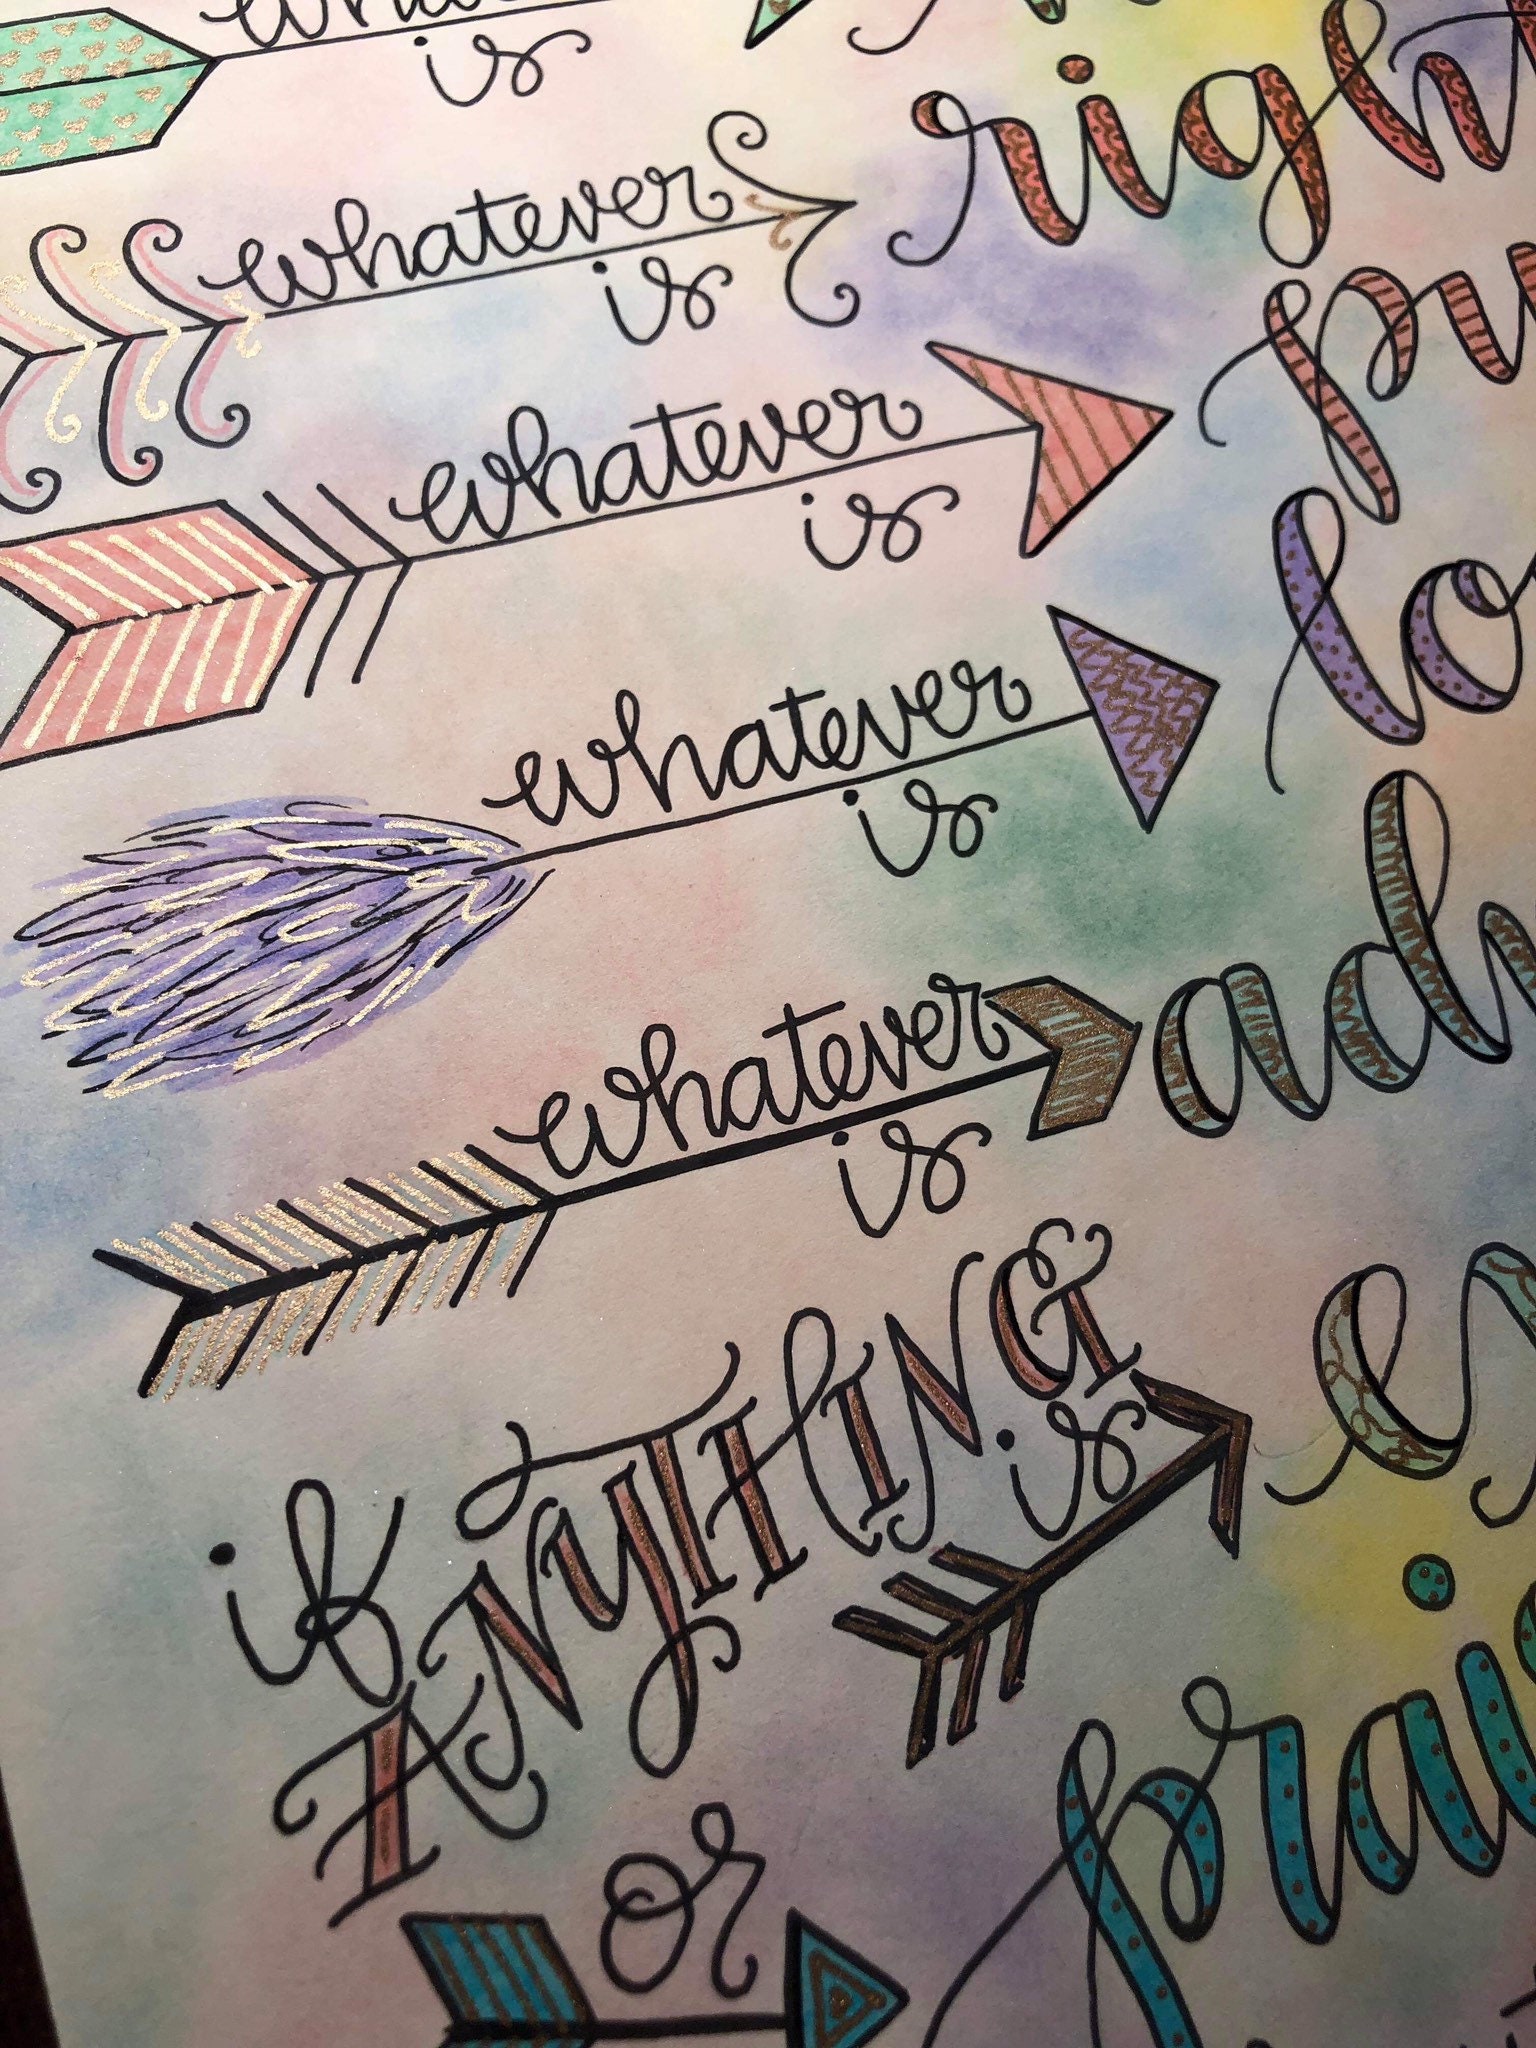 is
whatever is right
whatever is
whatever is
whatever is
if ANYTHING is
or